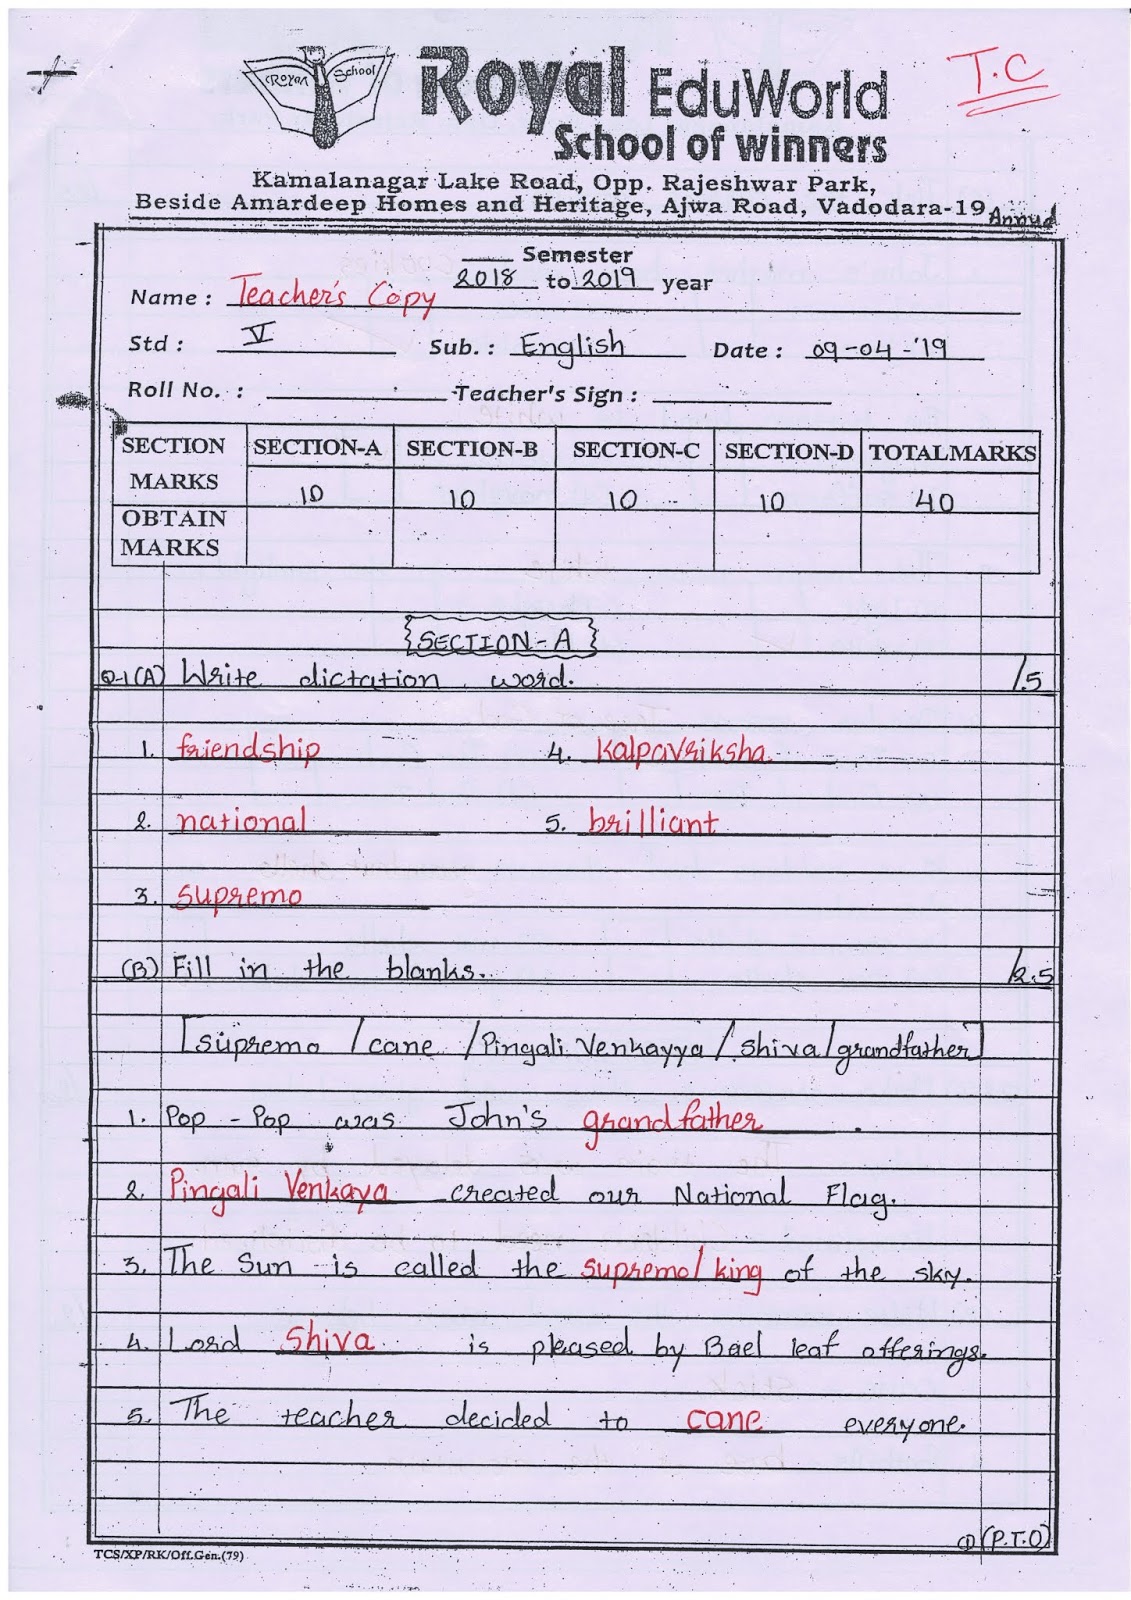 ROYAL School
Royal EduWorld
T.C
School of winners
Kamalanagar Lake Road, Opp. Rajeshwar Park,
Beside Amardeep Homes and Heritage, Ajwa Road, Vadodara-19
Annual
____ Semester
2018 to 2019 year
Name : Teacher's Copy
Std : V Sub. : English Date : 09-04-'19
Roll No. : Teacher's Sign :
SECTION SECTION-A SECTION-B SECTION-C SECTION-D TOTALMARKS
MARKS 10 10 10 10 40
OBTAIN
MARKS
SECTION-A
Q-1(A) Write dictation word. /5
1. friendship 4. Kalpavriksha
2. national 5. brilliant
3. supremo
(B) Fill in the blanks. /2.5
[supremo / cane / Pingali Venkayya / Shiva / grandfather]
1. Pop - Pop was John's grandfather .
2. Pingali Venkaya created our National Flag.
3. The Sun is called the supremo/ king of the sky.
4. Lord Shiva is pleased by Bael leaf offerings.
5. The teacher decided to cane everyone.
① (P.T.O)
TCS/XP/RK/Off.Gen.(79)